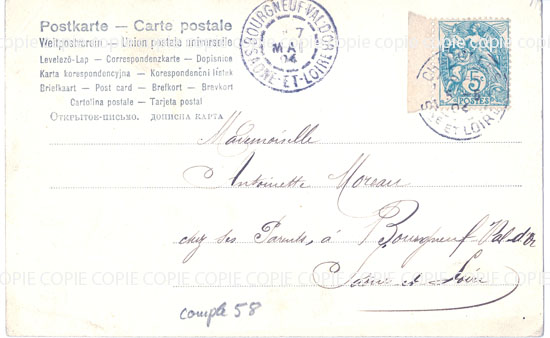 Postkarte — Carte postale
Weltpostverein — Union postale universelle
Levelező-Lap — Correspondenzkarte — Dopisnice
Karta korespondencyjna — Korespondenční lístek
Briefkaart — Post card — Brefkort — Brevkort
Cartolina postale — Tarjeta postal
Открытое письмо. дописна карта
BOURGNEUF-VAL-D'OR
7
MAI
04
SAONE-ET-LOIRE
5
POSTES
ET LOIRE
Mademoiselle
Antoinette Moreau
chez ses Parents, à Bourgneuf-Val-d'Or
Saône et Loire
COPIE COPIE COPIE COPIE COPIE COPIE COPIE
comple 58